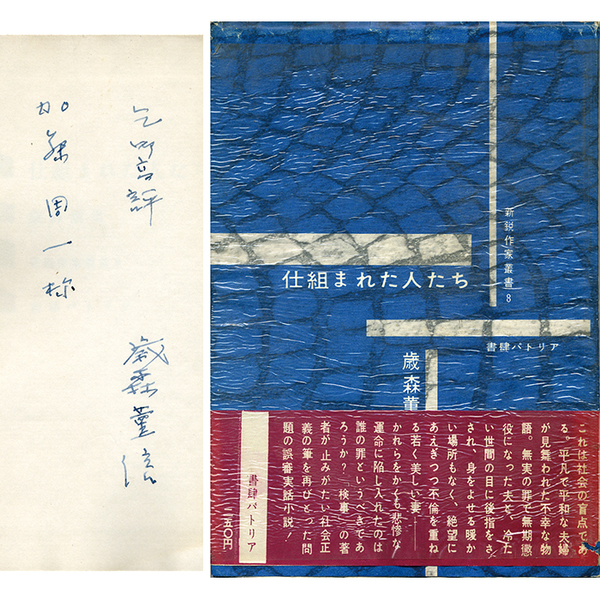 乞御高評
加藤周一様
歳森薫信
新鋭作家叢書8
仕組まれた人たち
書肆パトリア
歳森薫
これは社会の盲点であ
る。平凡で平和な夫婦
が見舞われた不幸な物
語。無実の罪で無期懲
役になった夫と、冷た
い世間の目に後指をさ
され、身をよせる暖か
い場所もなく、絶望に
あえぎつつ不倫を重ね
る若く美しい妻——
かれらをかくも悲惨な
運命に陥し入れたのは
誰の罪というべきであ
ろうか? 「検事」の著
者が止みがたい社会正
義の筆を再びとった問
題の誤審実話小説!
書肆パトリア
二五〇円